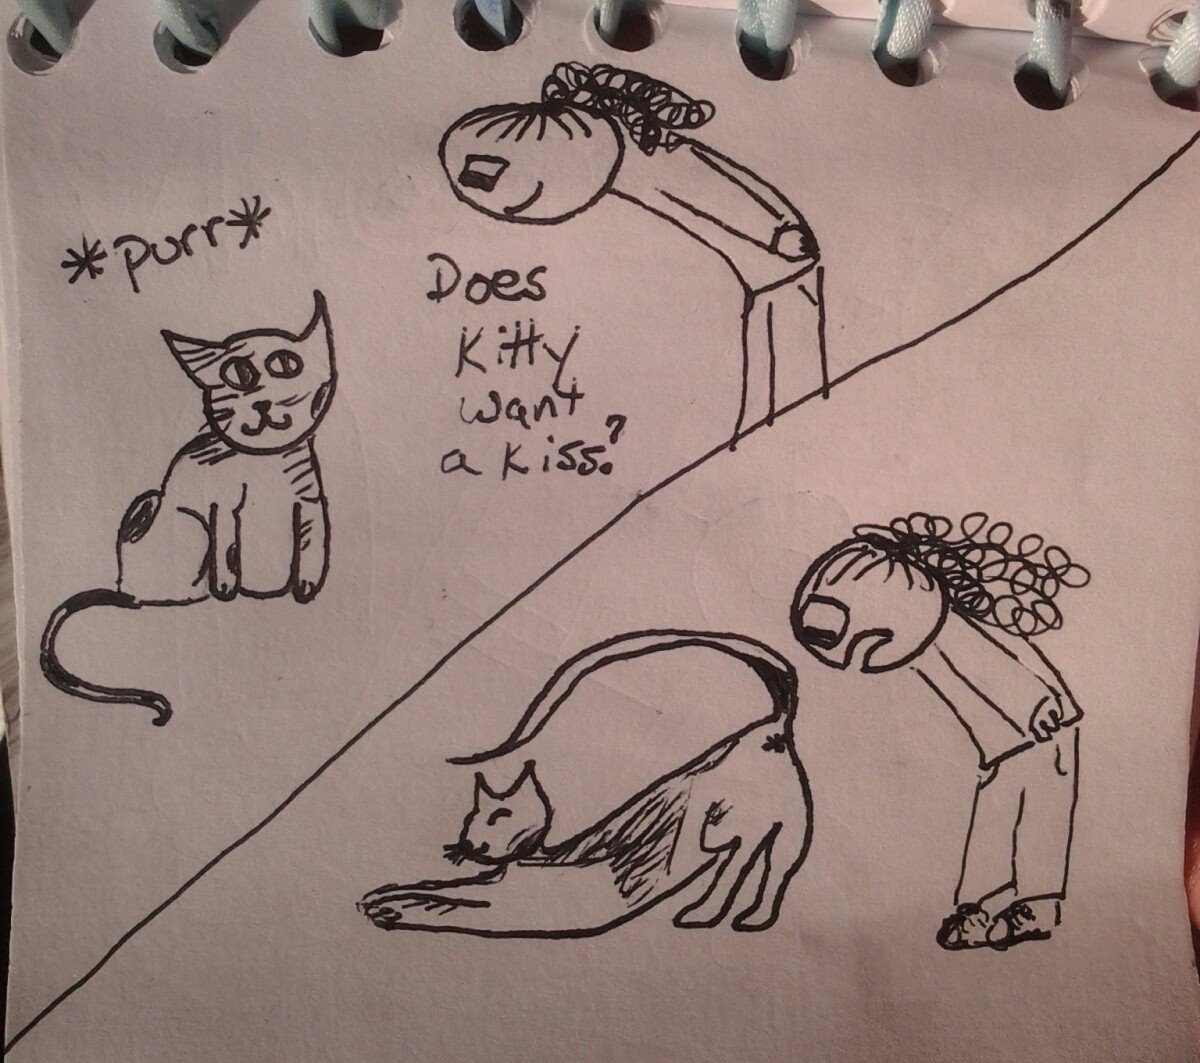 *purr*
Does
Kitty
want
a kiss?